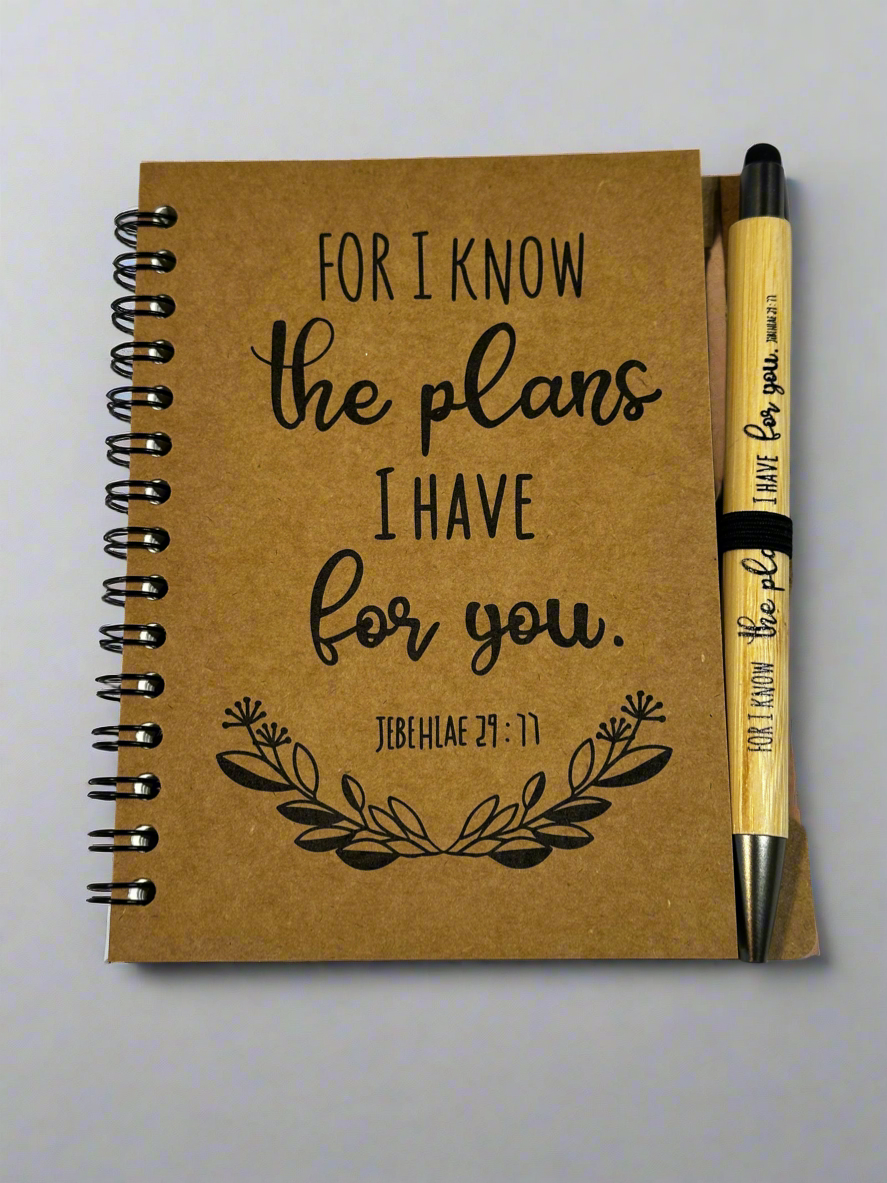 FOR I KNOW
the plans
I HAVE
for you.
JEBEHLAE 29:11
FOR I KNOW the pla I HAVE for you.